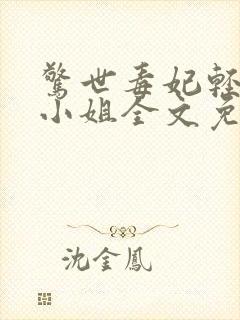 驚世毒妃輕
小姐全文免
沈金鳳